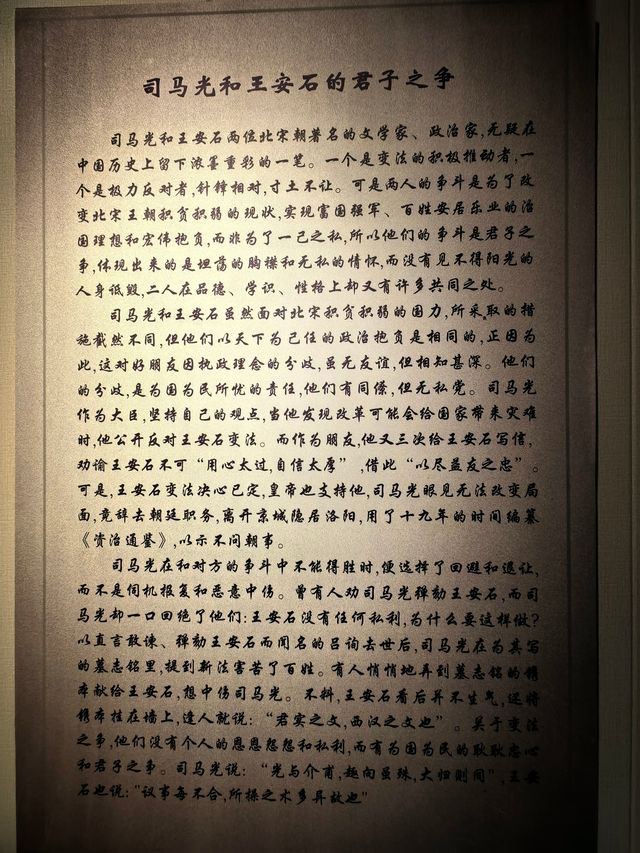 司马光和王安石的君子之争
司马光和王安石两位北宋朝著名的文学家、政治家,无疑在
中国历史上留下浓墨重彩的一笔。一个是变法的积极推动者,一
个是极力反对者,针锋相对,寸土不让。可是两人的争斗是为了改
变北宋王朝积贫积弱的现状,实现富国强军、百姓安居乐业的治
国理想和宏伟抱负,而非为了一己之私,所以他们的争斗是君子之
争,体现出来的是坦荡的胸襟和无私的情怀,而没有见不得阳光的
人身诋毁,二人在品德、学识、性格上却又有许多共同之处。
司马光和王安石虽然面对北宋积贫积弱的国力,所采取的措
施截然不同,但他们以天下为己任的政治抱负是相同的,正因为
此,这对好朋友因执政理念的分歧,虽无友谊,但相知甚深。他们
的分歧,是为国为民所忧的责任,他们有同僚,但无私党。司马光
作为大臣,坚持自己的观点,当他发现改革可能会给国家带来灾难
时,他公开反对王安石变法。而作为朋友,他又三次给王安石写信,
劝谕王安石不可“用心太过,自信太厚”,借此“以尽益友之忠”。
可是,王安石变法决心已定,皇帝也支持他,司马光眼见无法改变局
面,竟辞去朝廷职务,离开京城隐居洛阳,用了十九年的时间编纂
《资治通鉴》,以示不问朝事。
司马光在和对方的争斗中不能得胜时,便选择了回避和退让,
而不是伺机报复和恶意中伤。曾有人劝司马光弹劾王安石,而司
马光却一口回绝了他们:王安石没有任何私利,为什么要这样做?
以直言敢谏、弹劾王安石而闻名的吕诲去世后,司马光在为其写
的墓志铭里,提到新法害苦了百姓。有人悄悄地弄到墓志铭的镌
本献给王安石,想中伤司马光。不料,王安石看后并不生气,还将
镌本挂在墙上,逢人就说:“君实之文,西汉之文也”。关于变法
之争,他们没有个人的恩恩怨怨和私利,而有为国为民的耿耿忠心
和君子之争。司马光说:“光与介甫,趣向虽殊,大归则同”,王安
石也说:"议事每不合,所操之术多异故也"